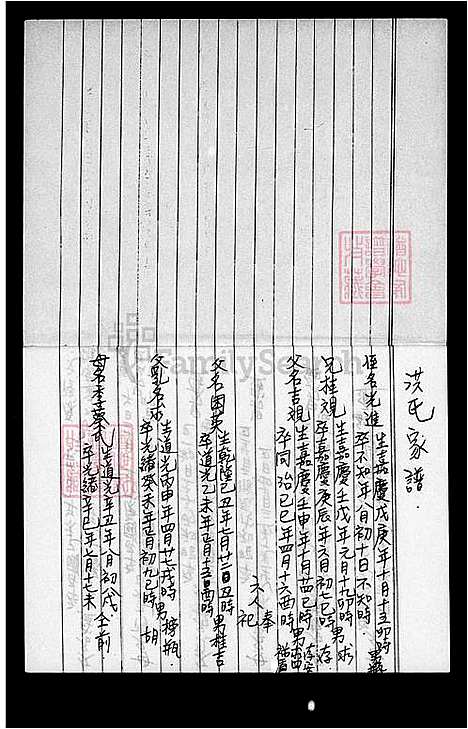 洪氏家譜
侄名光進 生嘉慶戊庚年十月十五卯時 卒不知年八月初十日不知時
兄桂規 生嘉慶壬戊年元月十九卯時男求 卒嘉慶庚辰年六月初七巳時 存
父名吉規 生嘉慶壬申年十月廿四巳時男 卒同治己巳年四月十六酉時
六人 奉祀
父名國英 生乾隆己丑年二月廿二日丑時男桂吉 卒道光乙未年正月十五日酉時
父乳名求 生道光丙申年四月廿七戌時男榜瓶 卒光緒癸未年正月初九巳時 胡
母名李蔡氏 生道光辛丑年八月初八戌 仝前 卒光緒辛巳年七月十七未
FamilySearch